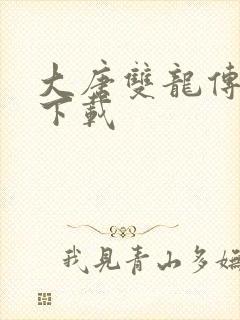 大唐雙龍傳
下載
我見青山多嫵